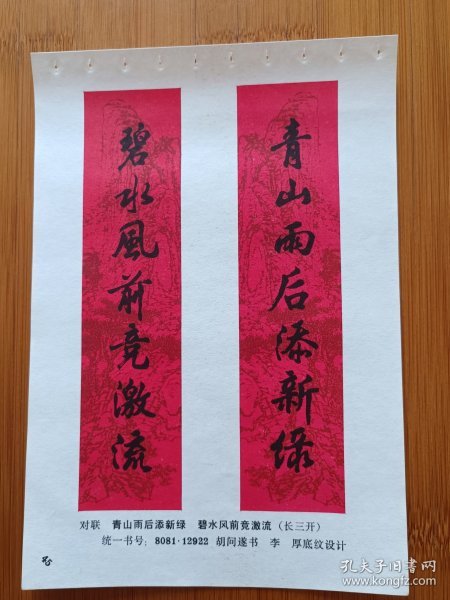 青山雨后添新绿
碧水風前竞激流
对联 青山雨后添新绿 碧水风前竞激流（长三开）
统一书号：8081·12922 胡问遂书 李 厚底纹设计
45
孔夫子旧书网
www.kongfz.com